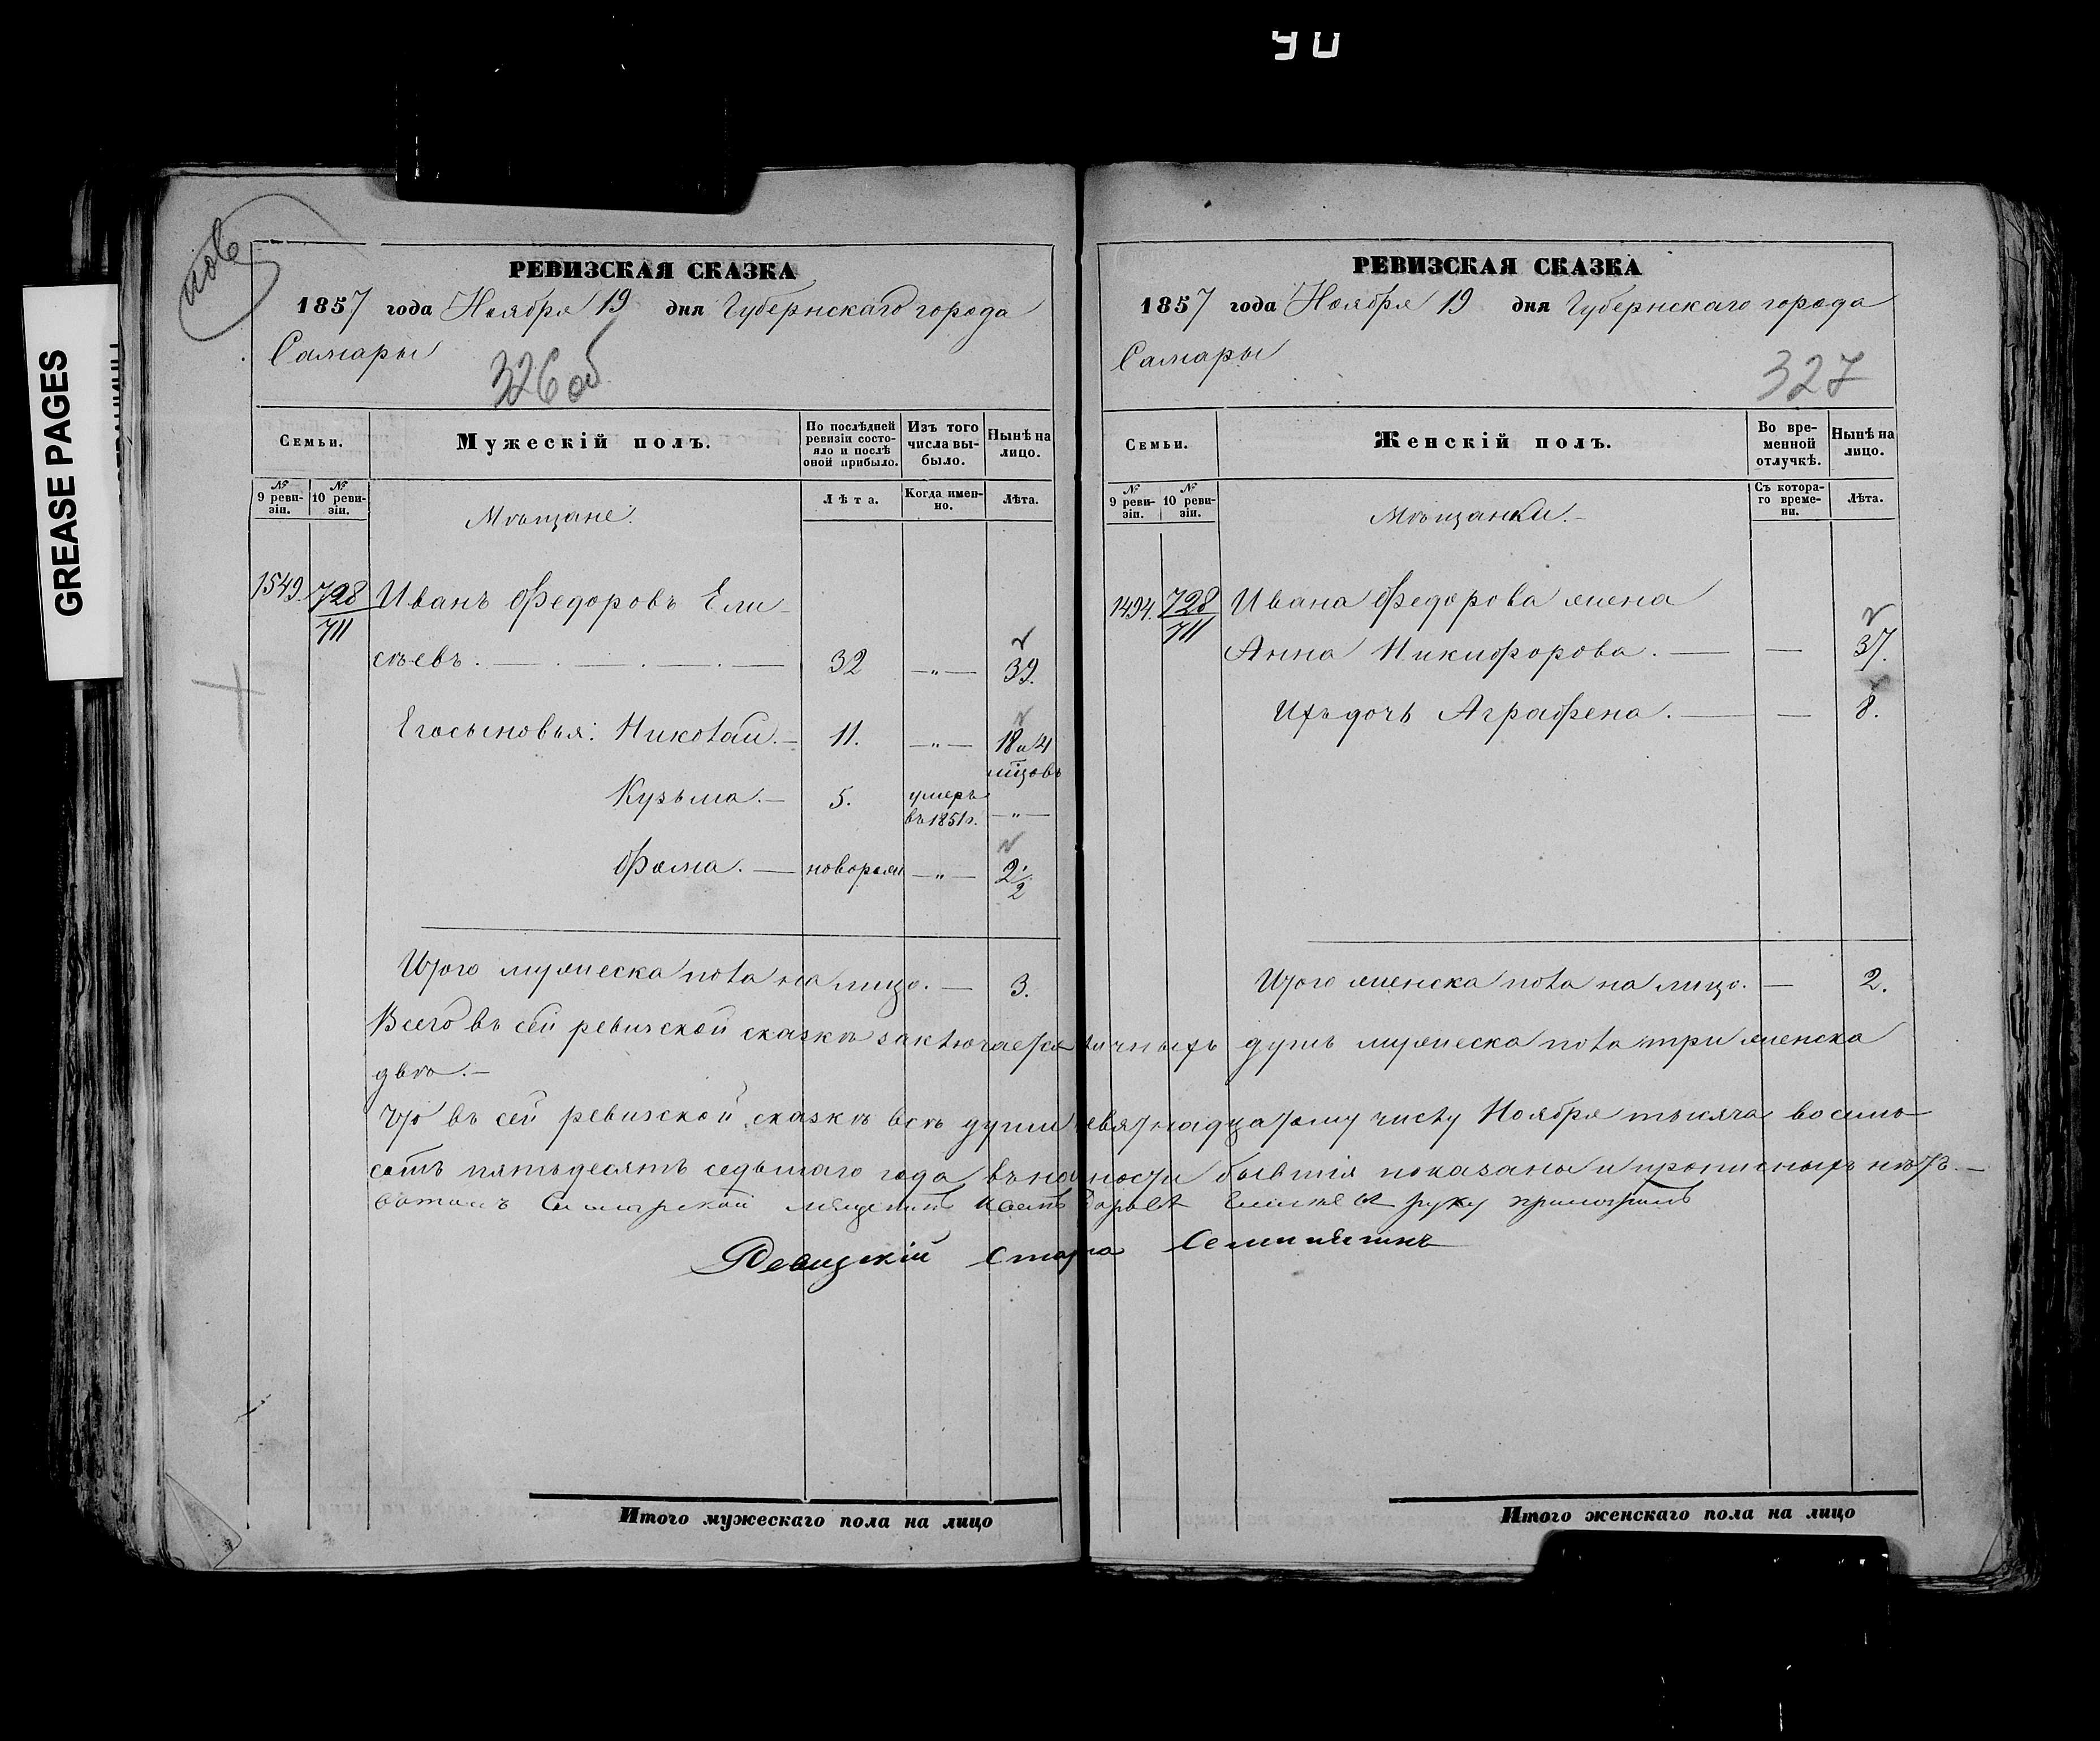 90
GREASE PAGES
РЕВИЗСКАЯ СКАЗКА
1857 года Ноября 19 дня Губернскаго города
Самары
326 об
Семьи.
Мужескій полъ.
По послѣдней ревизіи состояло и послѣ оной прибыло.
Изъ того числа выбыло.
Нынѣ на лицо.
№ 9 ревизіи.
№ 10 ревизіи.
Лѣта.
Когда именно.
Лѣта.
Мѣщане.
1549. 728/711 Иванъ Федоровъ Ели-
сѣевъ. — 32 —„— 39.
Егосыновья: Николай. — 11. —„— 18 и 4
мѣцовъ
Кузьма. — 5. умеръ въ 1851 г. —„—
Фома. — новорож —„— 2 1/2
Итого мужеска пола на лицо. — 3.
РЕВИЗСКАЯ СКАЗКА
1857 года Ноября 19 дня Губернскаго города
Самары
327
Семьи.
Женскій полъ.
Во временной отлучкѣ.
Нынѣ на лицо.
№ 9 ревизіи.
№ 10 ревизіи.
Съ котораго времени.
Лѣта.
Мѣщанки. —
1494. 728/711 Ивана Федорова жена
Анна Никифорова. — — 37.
Ихъ дочь Аграфена. — — 8.
Итого женска пола на лицо. — 2.
Всего въ сей ревизской сказкѣ заключается личныхъ душъ мужеска пола три женска
двѣ. —
Что въ сей ревизской сказкѣ всѣ души девятнадцатому числу Ноября тысяча восемь
сотъ пятьдесятъ седьмаго года въ наличности бывшія показаны и прописныхъ нѣтъ. —
Самарской мещенинъ руку приложилъ
Ревизскій Староста
Итого мужескаго пола на лицо
Итого женскаго пола на лицо